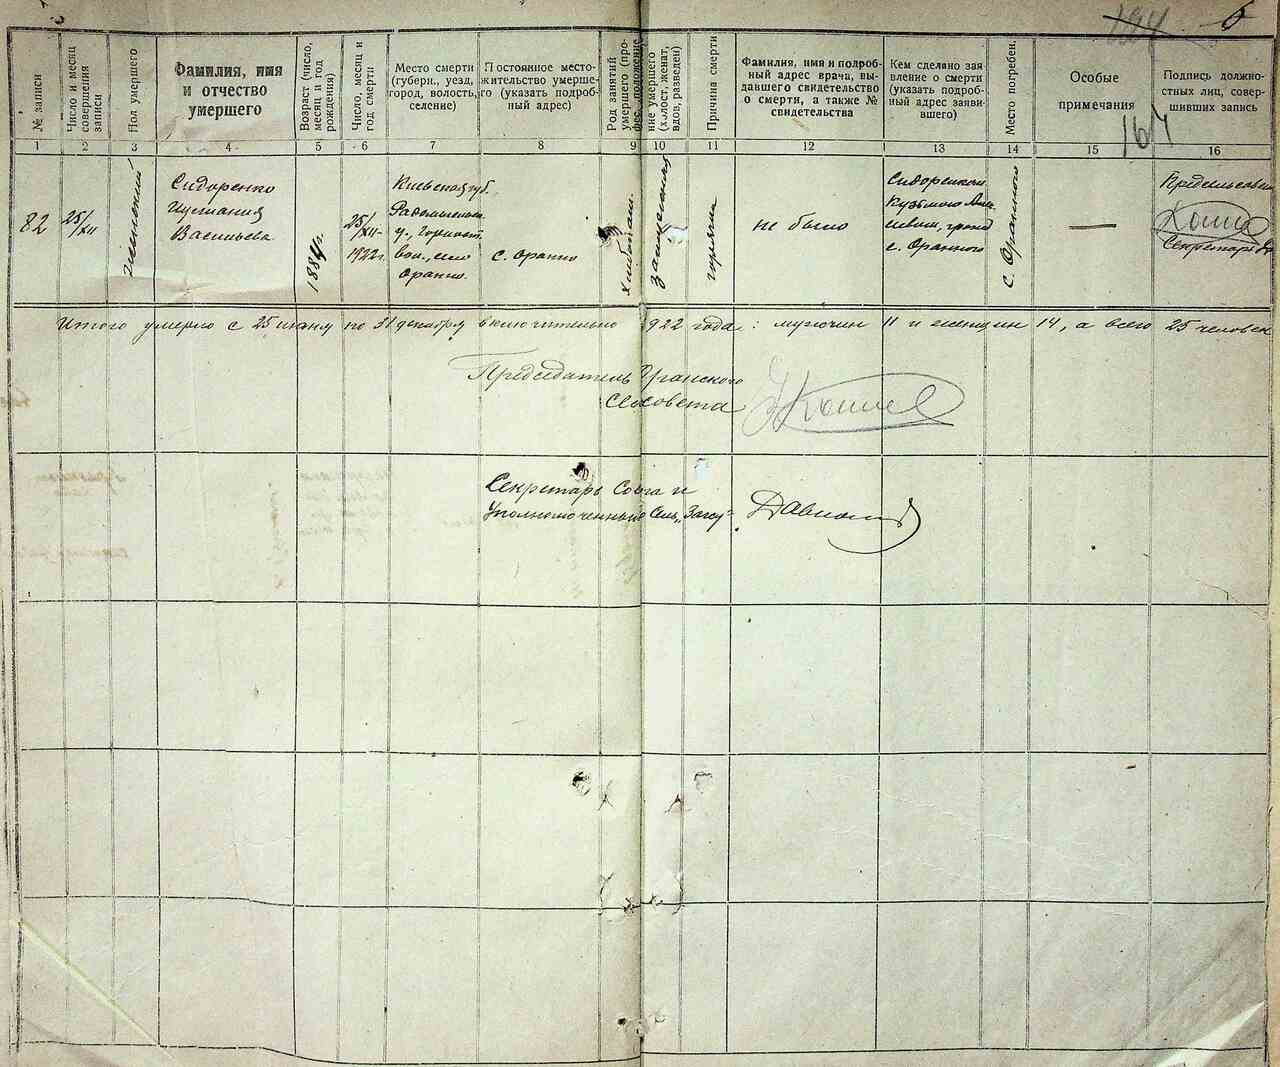 194 6
№ записи
Число и месяц совершения записи
Пол умершего
Фамилия, имя
и отчество
умершего
Возраст (число, месяц и год рождения)
Число, месяц и год смерти
Место смерти
(губерн., уезд,
город, волость,
селение)
Постоянное место-
жительство умерше-
го (указать подроб-
ный адрес)
Род занятий умершего (про-
фес. положение
ние умершего (холост, женат, вдов, разведен)
Причина смерти
Фамилия, имя и подроб-
ный адрес врача, вы-
давшего свидетельство
о смерти, а также №
свидетельства
Кем сделано зая
вление о смерти
(указать подроб-
ный адрес заяви-
вшего)
Место погребен.
Особые
примечания
Подпись должно-
стных лиц, совер-
шивших запись
164
1 2 3 4 5 6 7 8 9 10 11 12 13 14 15 16
82
25/XII
женский
Сидоренко
Васильева
25/XII-
1922г.
Киевская губ.
у., Горност.
вол., село
Оранно.
с. Оранно
горячка
не было
Кузьмою
с. Оранного
с. Оранного
—
Секретарь
Итого умерло с 25 июня по 31 декабря включительно 1922 года: мужчин 11 и женщин 14, а всего 25 человек
Председатель Оранского
Сельсовета
Секретарь С-вета и
Уполномоченный Сель „Загсу"